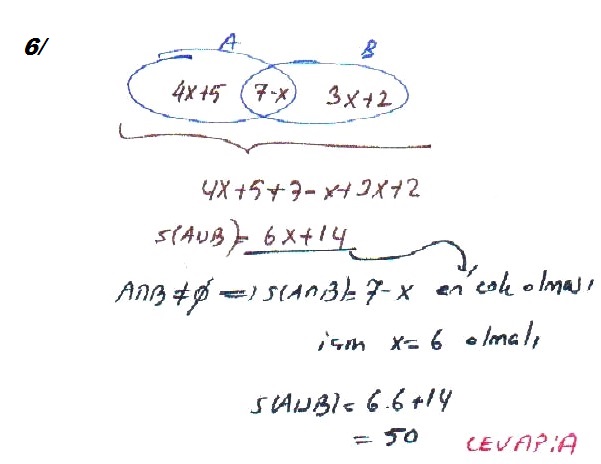 6/
A B
4x+5 7-x 3x+2
4x+5+7-x+3x+2
S(A∪B)= 6x+14
A∩B≠∅ ⇒ S(A∩B)= 7-x en çok olması
için x=6 olmalı
S(A∪B)= 6.6+14
= 50 CEVAP:A